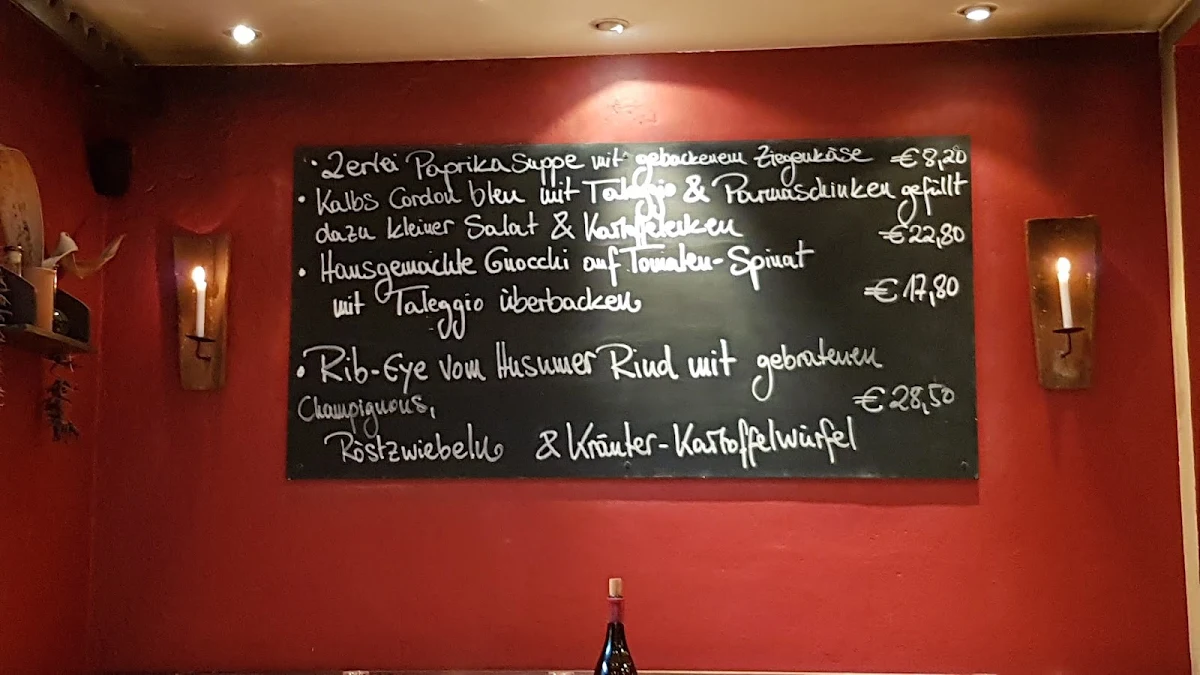 • 2erlei Paprikasuppe mit gebackenem Ziegenkäse €8,20
• Kalbs Cordon bleu mit Taleggio & Parmaschinken gefüllt
dazu kleiner Salat & Kartoffelecken €22,80
• Hausgemachte Gnocchi auf Tomaten-Spinat
mit Taleggio überbacken €17,80
• Rib-Eye vom Husumer Rind mit gebratenen
Champignons, €28,50
Röstzwiebeln & Kräuter-Kartoffelwürfel